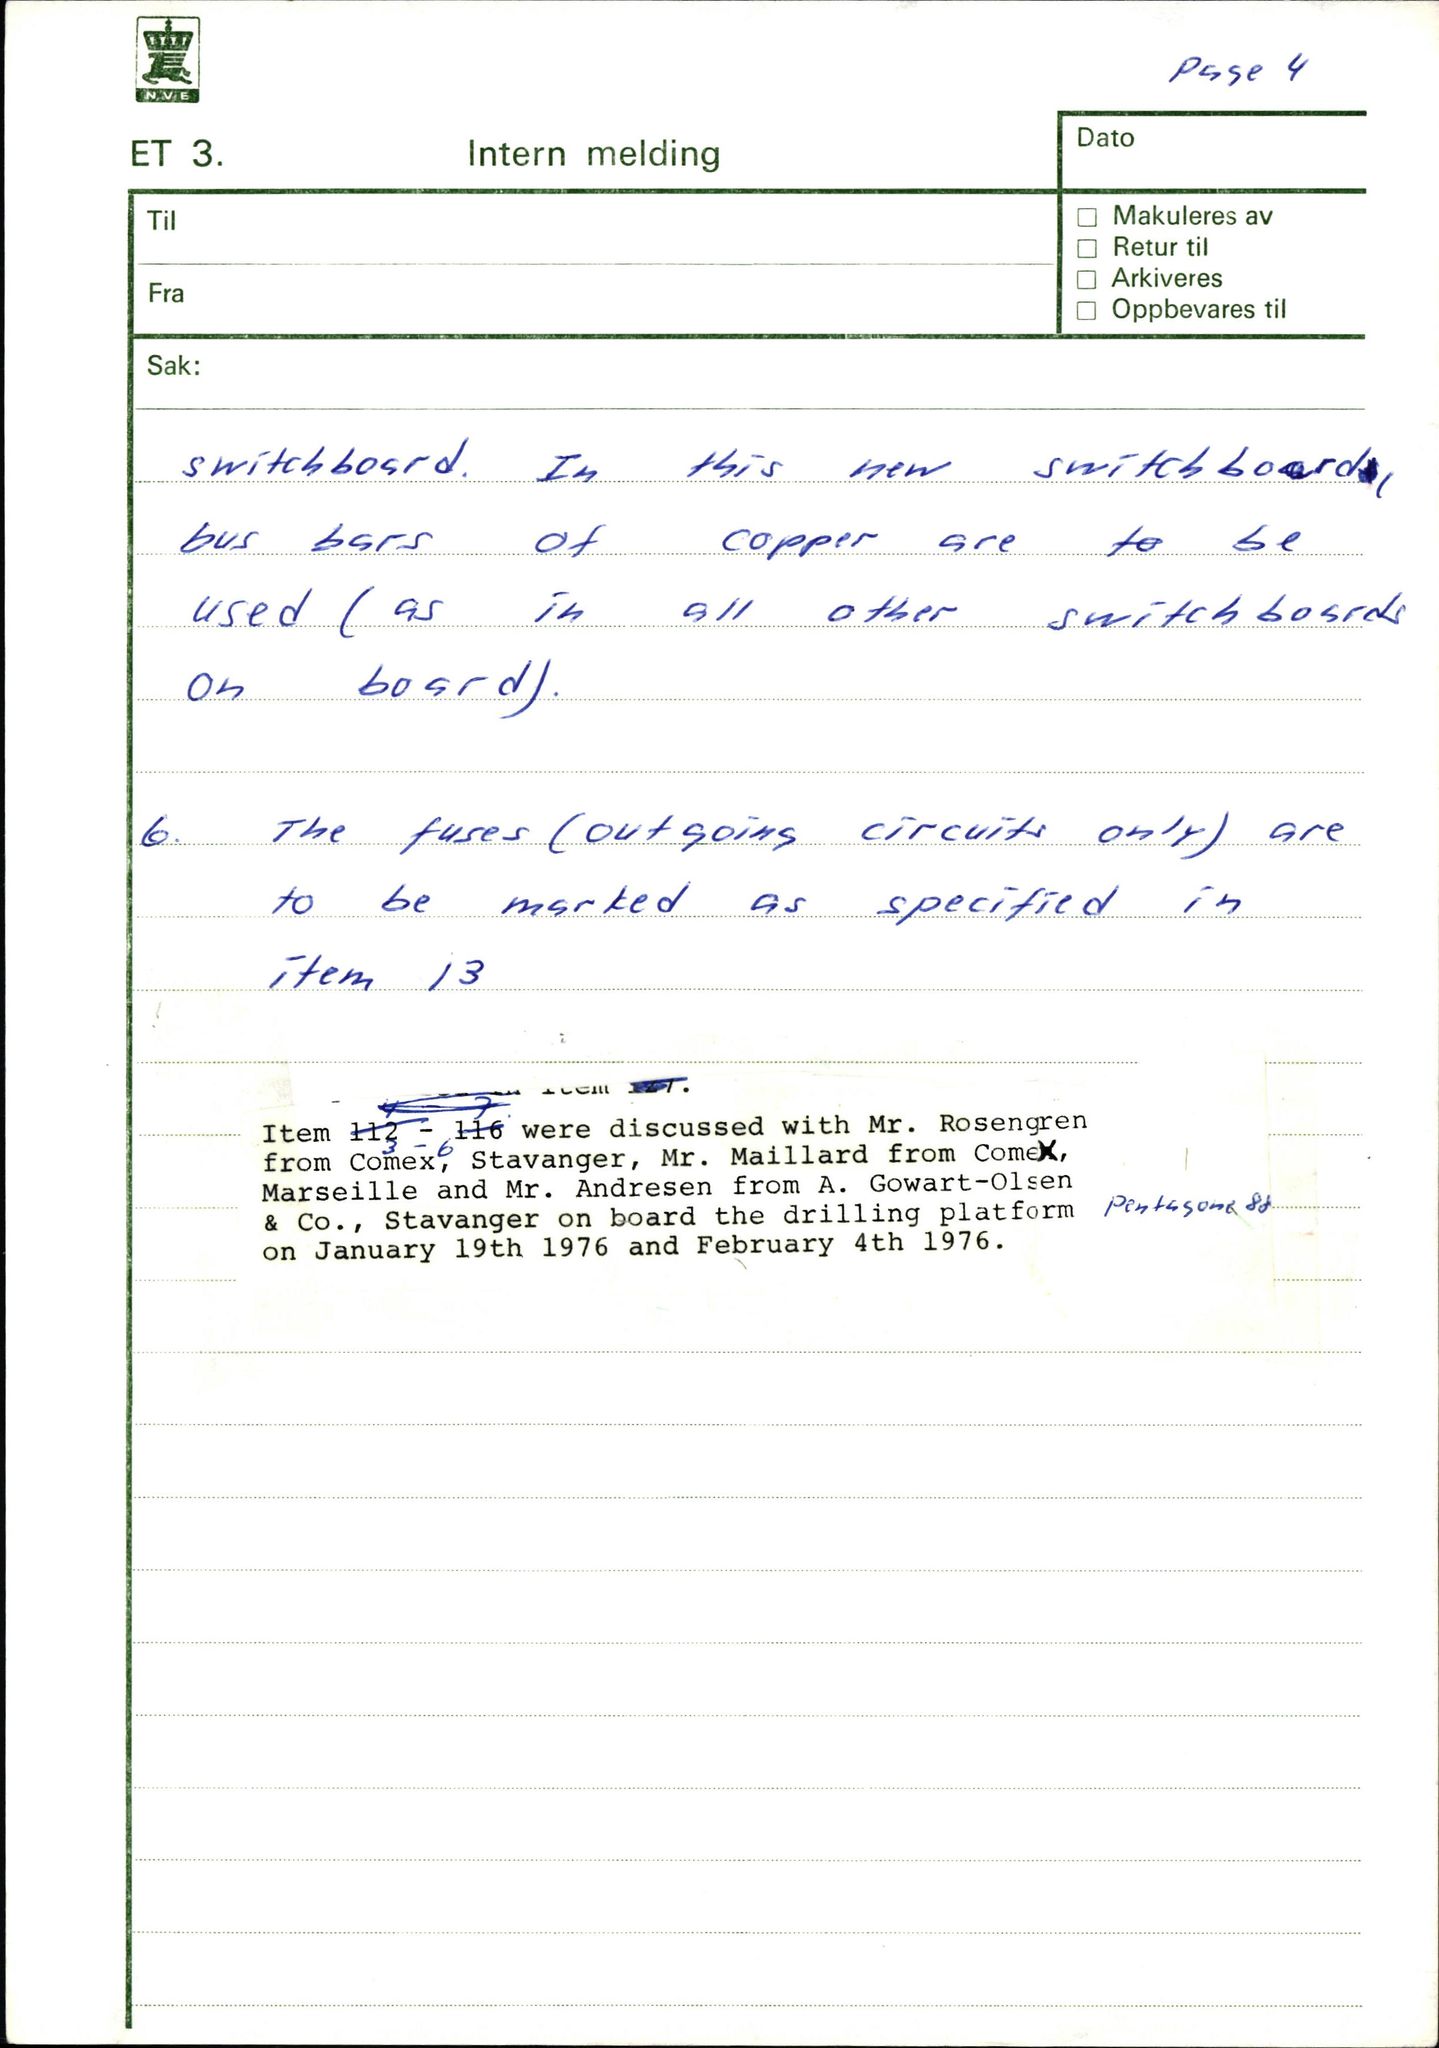 Page 4
N.V.E
ET 3. Intern melding
Dato
Til
Makuleres av
Retur til
Arkiveres
Oppbevares til
Fra
Sak:
switchboard. In this new switchboard,
bus bars of copper are to be
used (as in all other switchboards
on board).
6. The fuses (outgoing circuits only) are
to be marked as specified in
item 13
item
Item 112 - 116 were discussed with Mr. Rosengren
3 - 6
from Comex, Stavanger, Mr. Maillard from Comex,
Marseille and Mr. Andresen from A. Gowart-Olsen
& Co., Stavanger on board the drilling platform Pentagone 84
on January 19th 1976 and February 4th 1976.